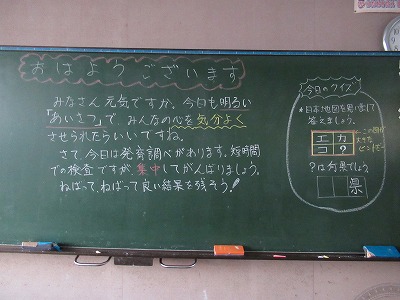 おはようございます
みなさん元気ですか。今日も明るい
「あいさつ」で、みんなの心を気分よく
させられたらいいですね。
さて、今日は発育調べがあります。短時間
での検査ですが集中してがんばりましょう。
ねばって、ねばって良い結果を残そう!
今日のクイズ
*日本地図を思い出して
答えましょう。
エ カ
コ ?
←この図が
大きな
ヒントだ〜
?は何県でしょう。
県